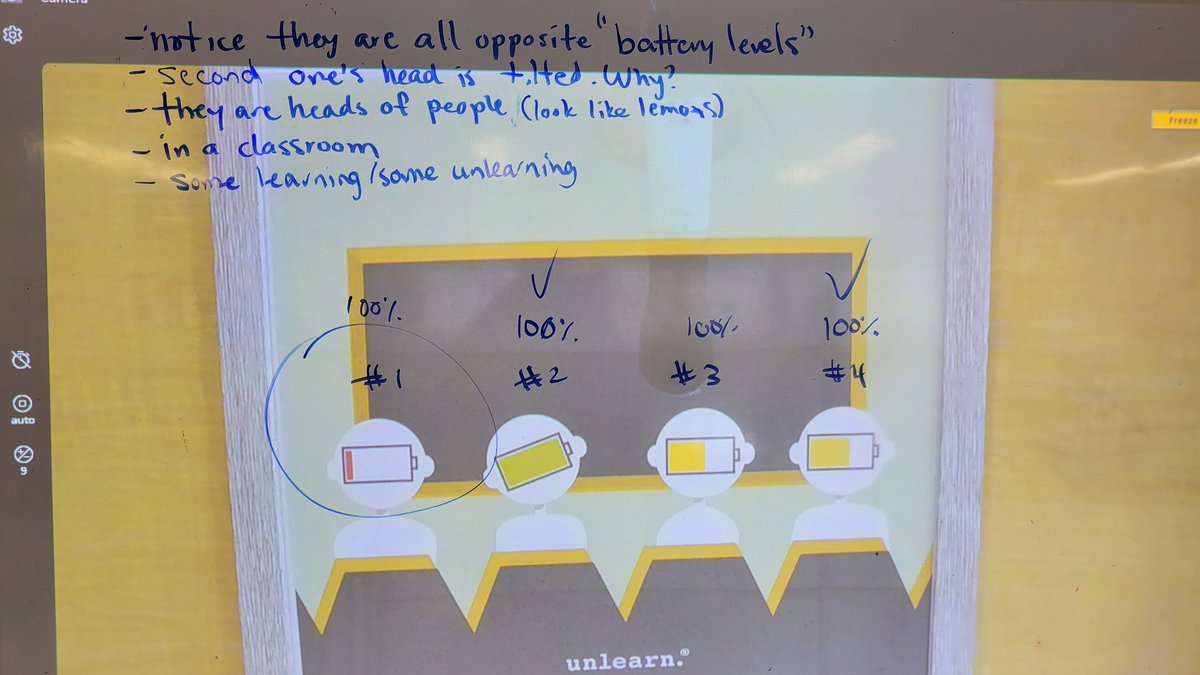 camera
- notice they are all opposite "battery levels"
- second one's head is tilted. Why?
- they are heads of people (look like lemons)
- in a classroom
- some learning/some unlearning
Freeze
100% 100% 100% 100%
#1 #2 #3 #4
auto
9
unlearn.®